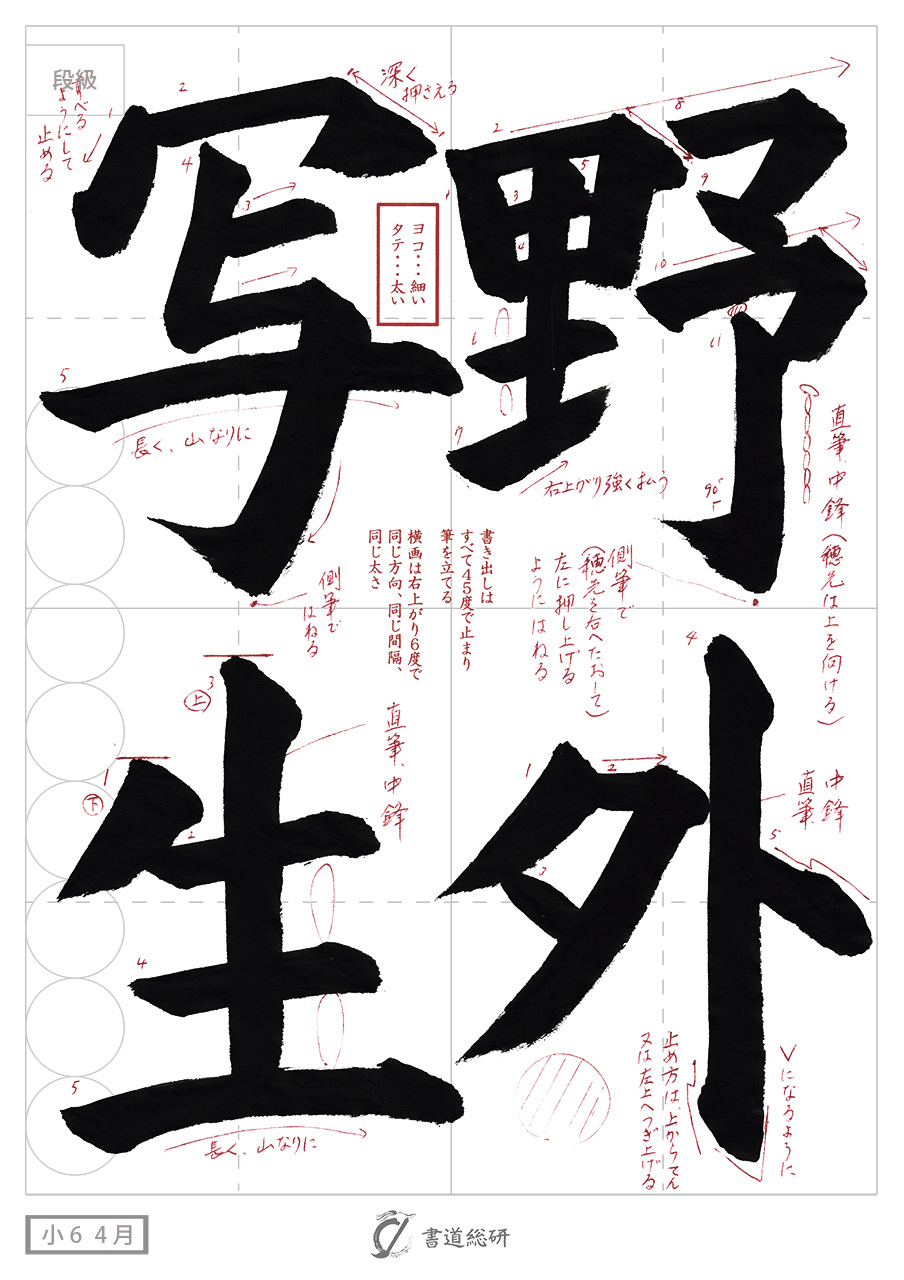 野外
写生
段級
すべる
ようにして
止める
深く
押さえる
ヨコ・・・細い
タテ・・・太い
長く、山なりに
右上がり強く払う
直筆、中鋒(穂先は上を向ける)
90°
側筆で
(穂先を右へたおして)
左に押し上げる
ようにはねる
書き出しは
すべて45度で止まり
筆を立てる
横画は右上がり6度で
同じ方向、同じ間隔、
同じ太さ
側筆で
はねる
中鋒
直筆
直筆、中鋒
上
下
Vになるように
止め方は、上からてん
又は左上へつぎ上げる
長く、山なりに
小6 4月
書道総研